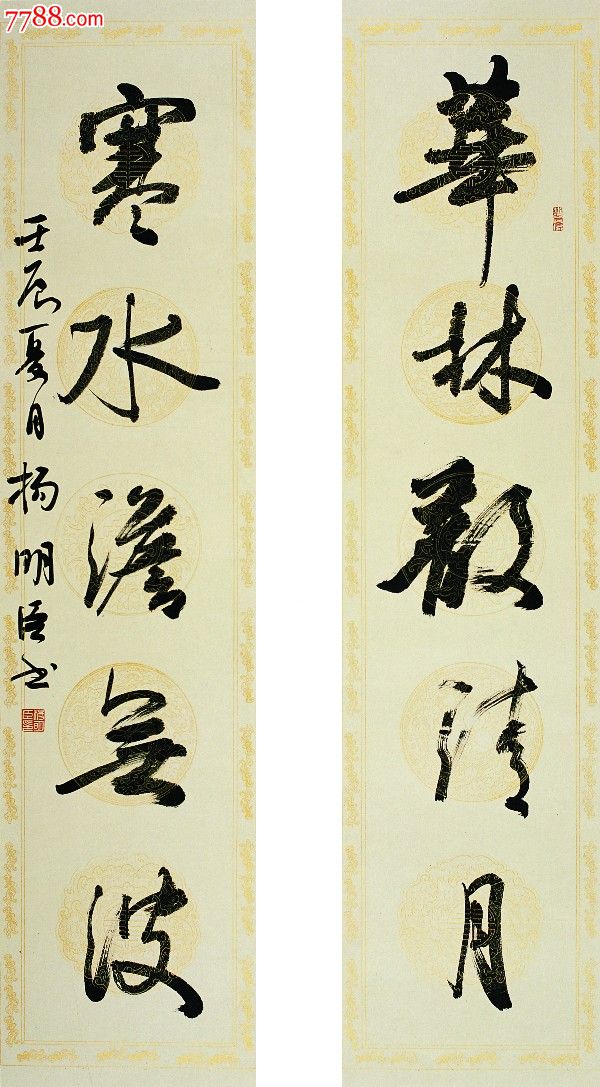 7788.com
華林散清月
寒水澹無波
壬辰夏月楊明臣书